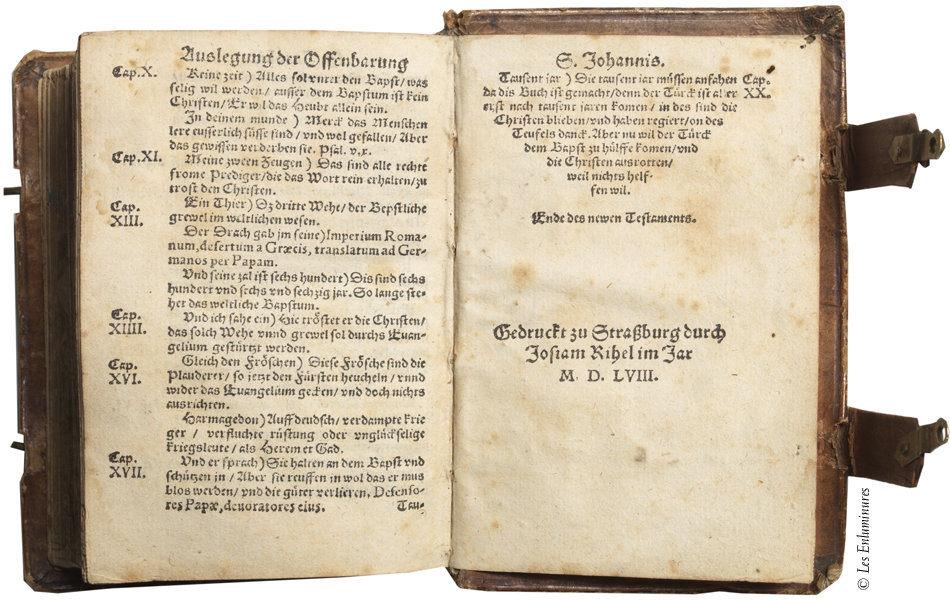 Auslegung der Offenbarung
Cap. X.
Keine zeit) Alles sol vnter den Bapst/ was
selig wil werden/ ausser dem Bapstum ist kein
Christen/ Er wil das Heubt allein sein.
In deinem munde) Merck das Menschen
lere eusserlich süsse sind/ vnd wol gefallen/ Aber
das gewissen verderben sie. Psal. v. x.
Cap. XI.
Meine zween Zeugen) Das sind alle rechte
frome Prediger/ die das Wort rein erhalten/ zu
trost den Christen.
Cap.
XIII.
Ein Thier) Dz dritte Wehe/ der Bepstliche
grewel im weltlichen wesen.
Der Drach gab jm seine) Imperium Roma-
num, desertum a Græcis, translatum ad Ger-
manos per Papam.
Vnd seine zal ist sechs hundert) Dis sind sechs
hundert vnd sechs vnd sechzig jar. So lange ste-
het das weltliche Bapstum.
Cap.
XIIII.
Vnd ich sahe ein) Hie tröstet er die Christen/
das solch Wehe vnnd grewel sol durchs Euan-
gelium gestürtzt werden.
Cap.
XVI.
Gleich den Fröschen) Diese Frösche sind die
Plauderer/ so jetzt den Fürsten heucheln/ vnnd
wider das Euangelium gecken/ vnd doch nichts
ausrichten.
Harmagedon) Auff deudsch/ verdampte krie
ger/ verfluchte rüstung oder vnglückselige
kriegsleute/ als Herem et Gad.
Cap.
XVII.
Vnd er sprach) Sie halten an dem Bapst vnd
schützen in/ Aber sie reuffen in wol das er mus
blos werden/ vnd die güter verlieren, Defenso-
res Papæ, deuoratores eius.
Tau-
S. Johannis.
Tausent jar) Die tausent jar müssen anfahen
Cap.
XX.
da dis Buch ist gemacht/ denn der Türck ist aller
erst nach tausent jaren komen/ in des sind die
Christen blieben/ vnd haben regiert/ on des
Teufels danck. Aber nu wil der Türck
dem Bapst zu hülffe komen/ vnd
die Christen ausrotten/
weil nichts helf-
fen wil.
Ende des newen Testaments.
Gedruckt zu Straßburg durch
Josiam Rihel im Jar
M. D. LVIII.
© Les Enluminures